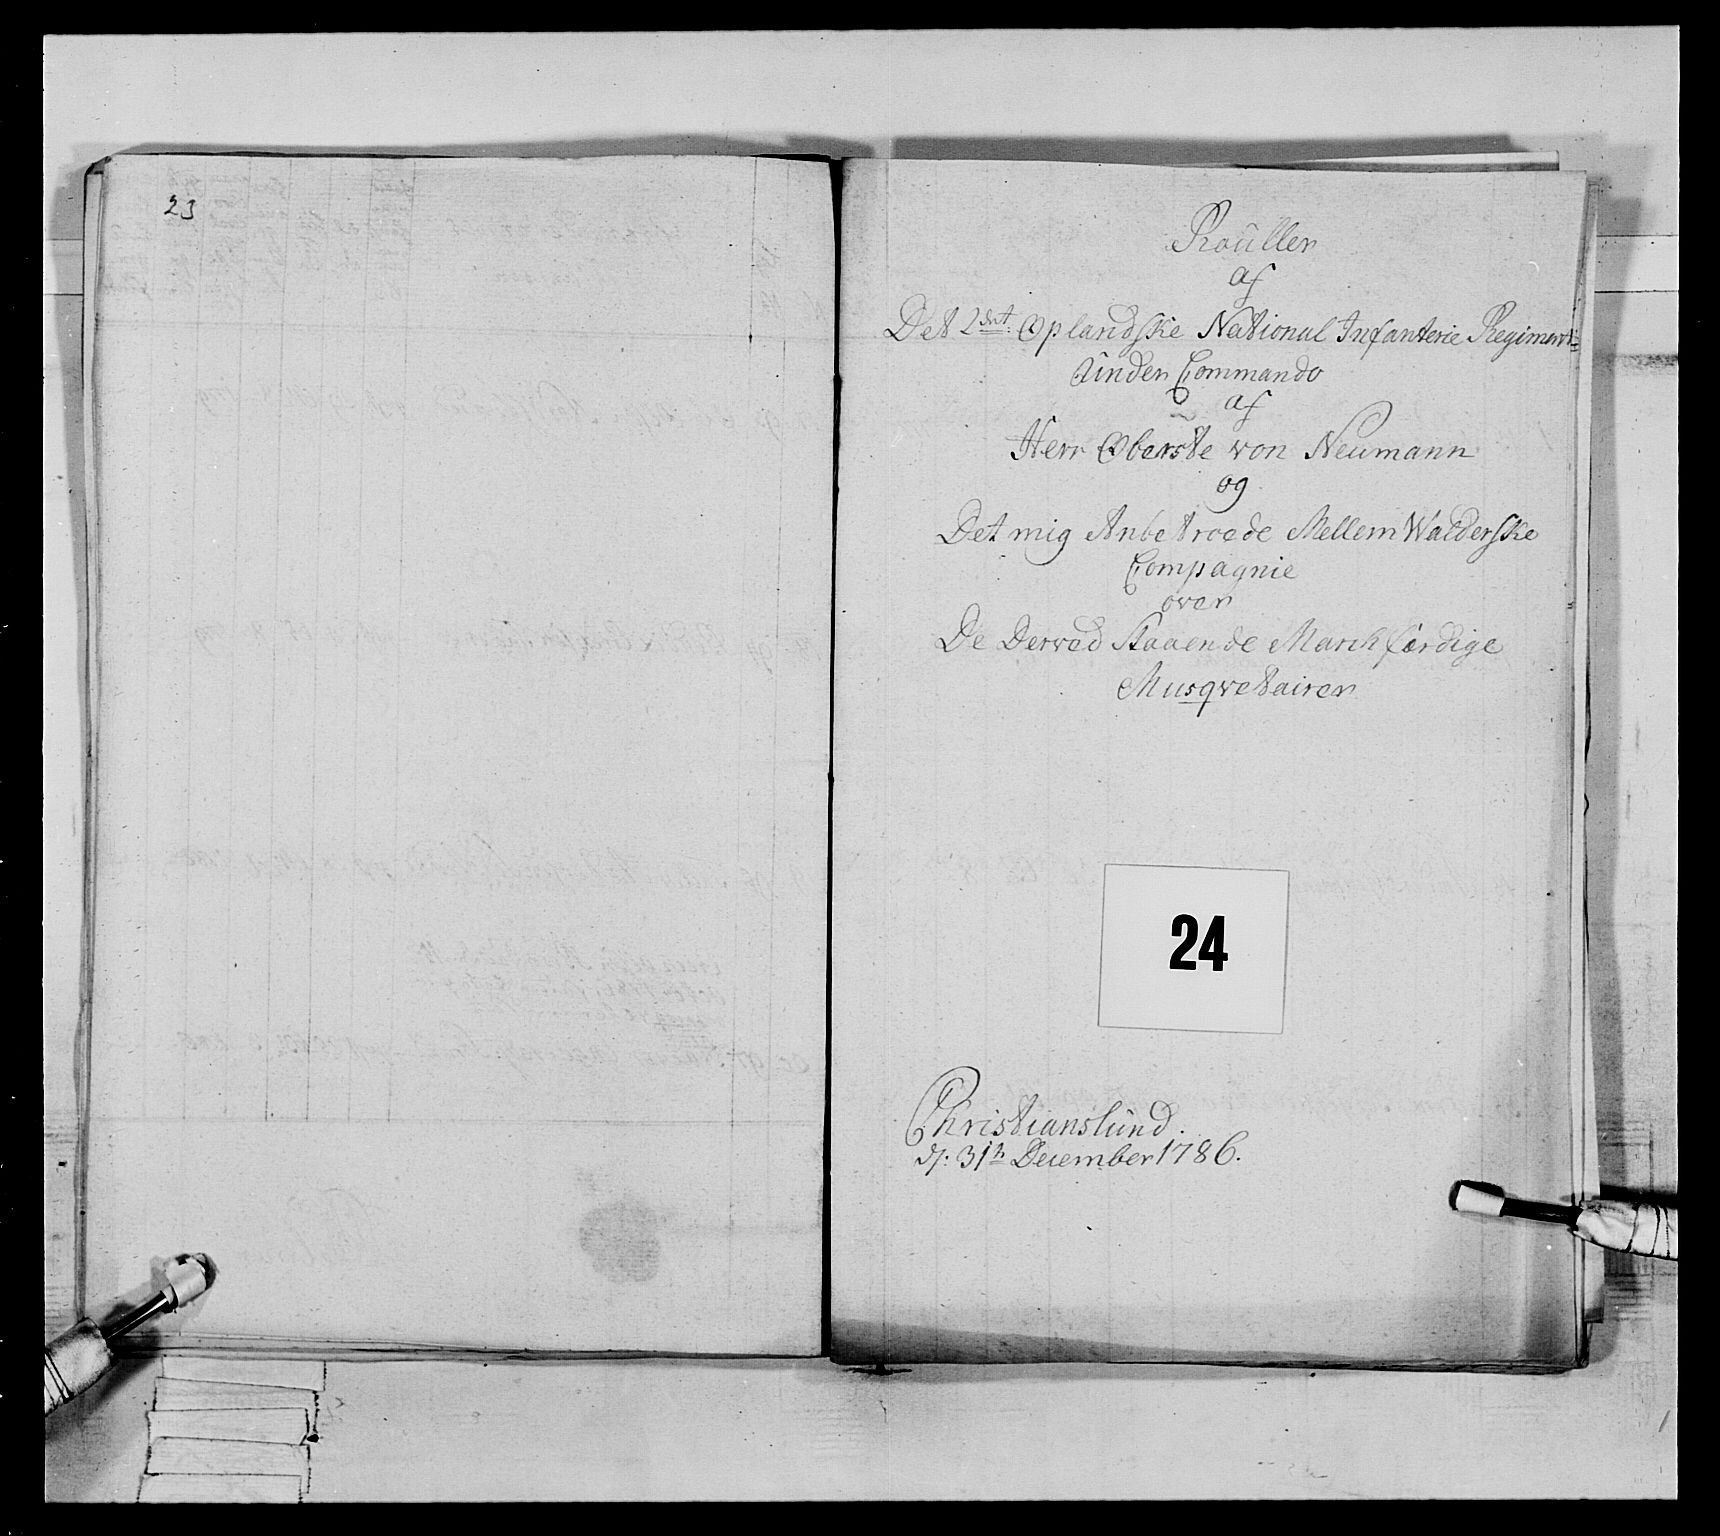 23
Roûller
af
Det 2det Oplandske National Infanterie Regiment
ûnder Commando
af
Herr Oberste von Neumann
og
Det mig Anbetroede Mellem Walderske
Compagnie
over
De Derved Staaende Marchfærdige
Musqvetairer
24
Christianslûnd.
d: 31th December 1786.